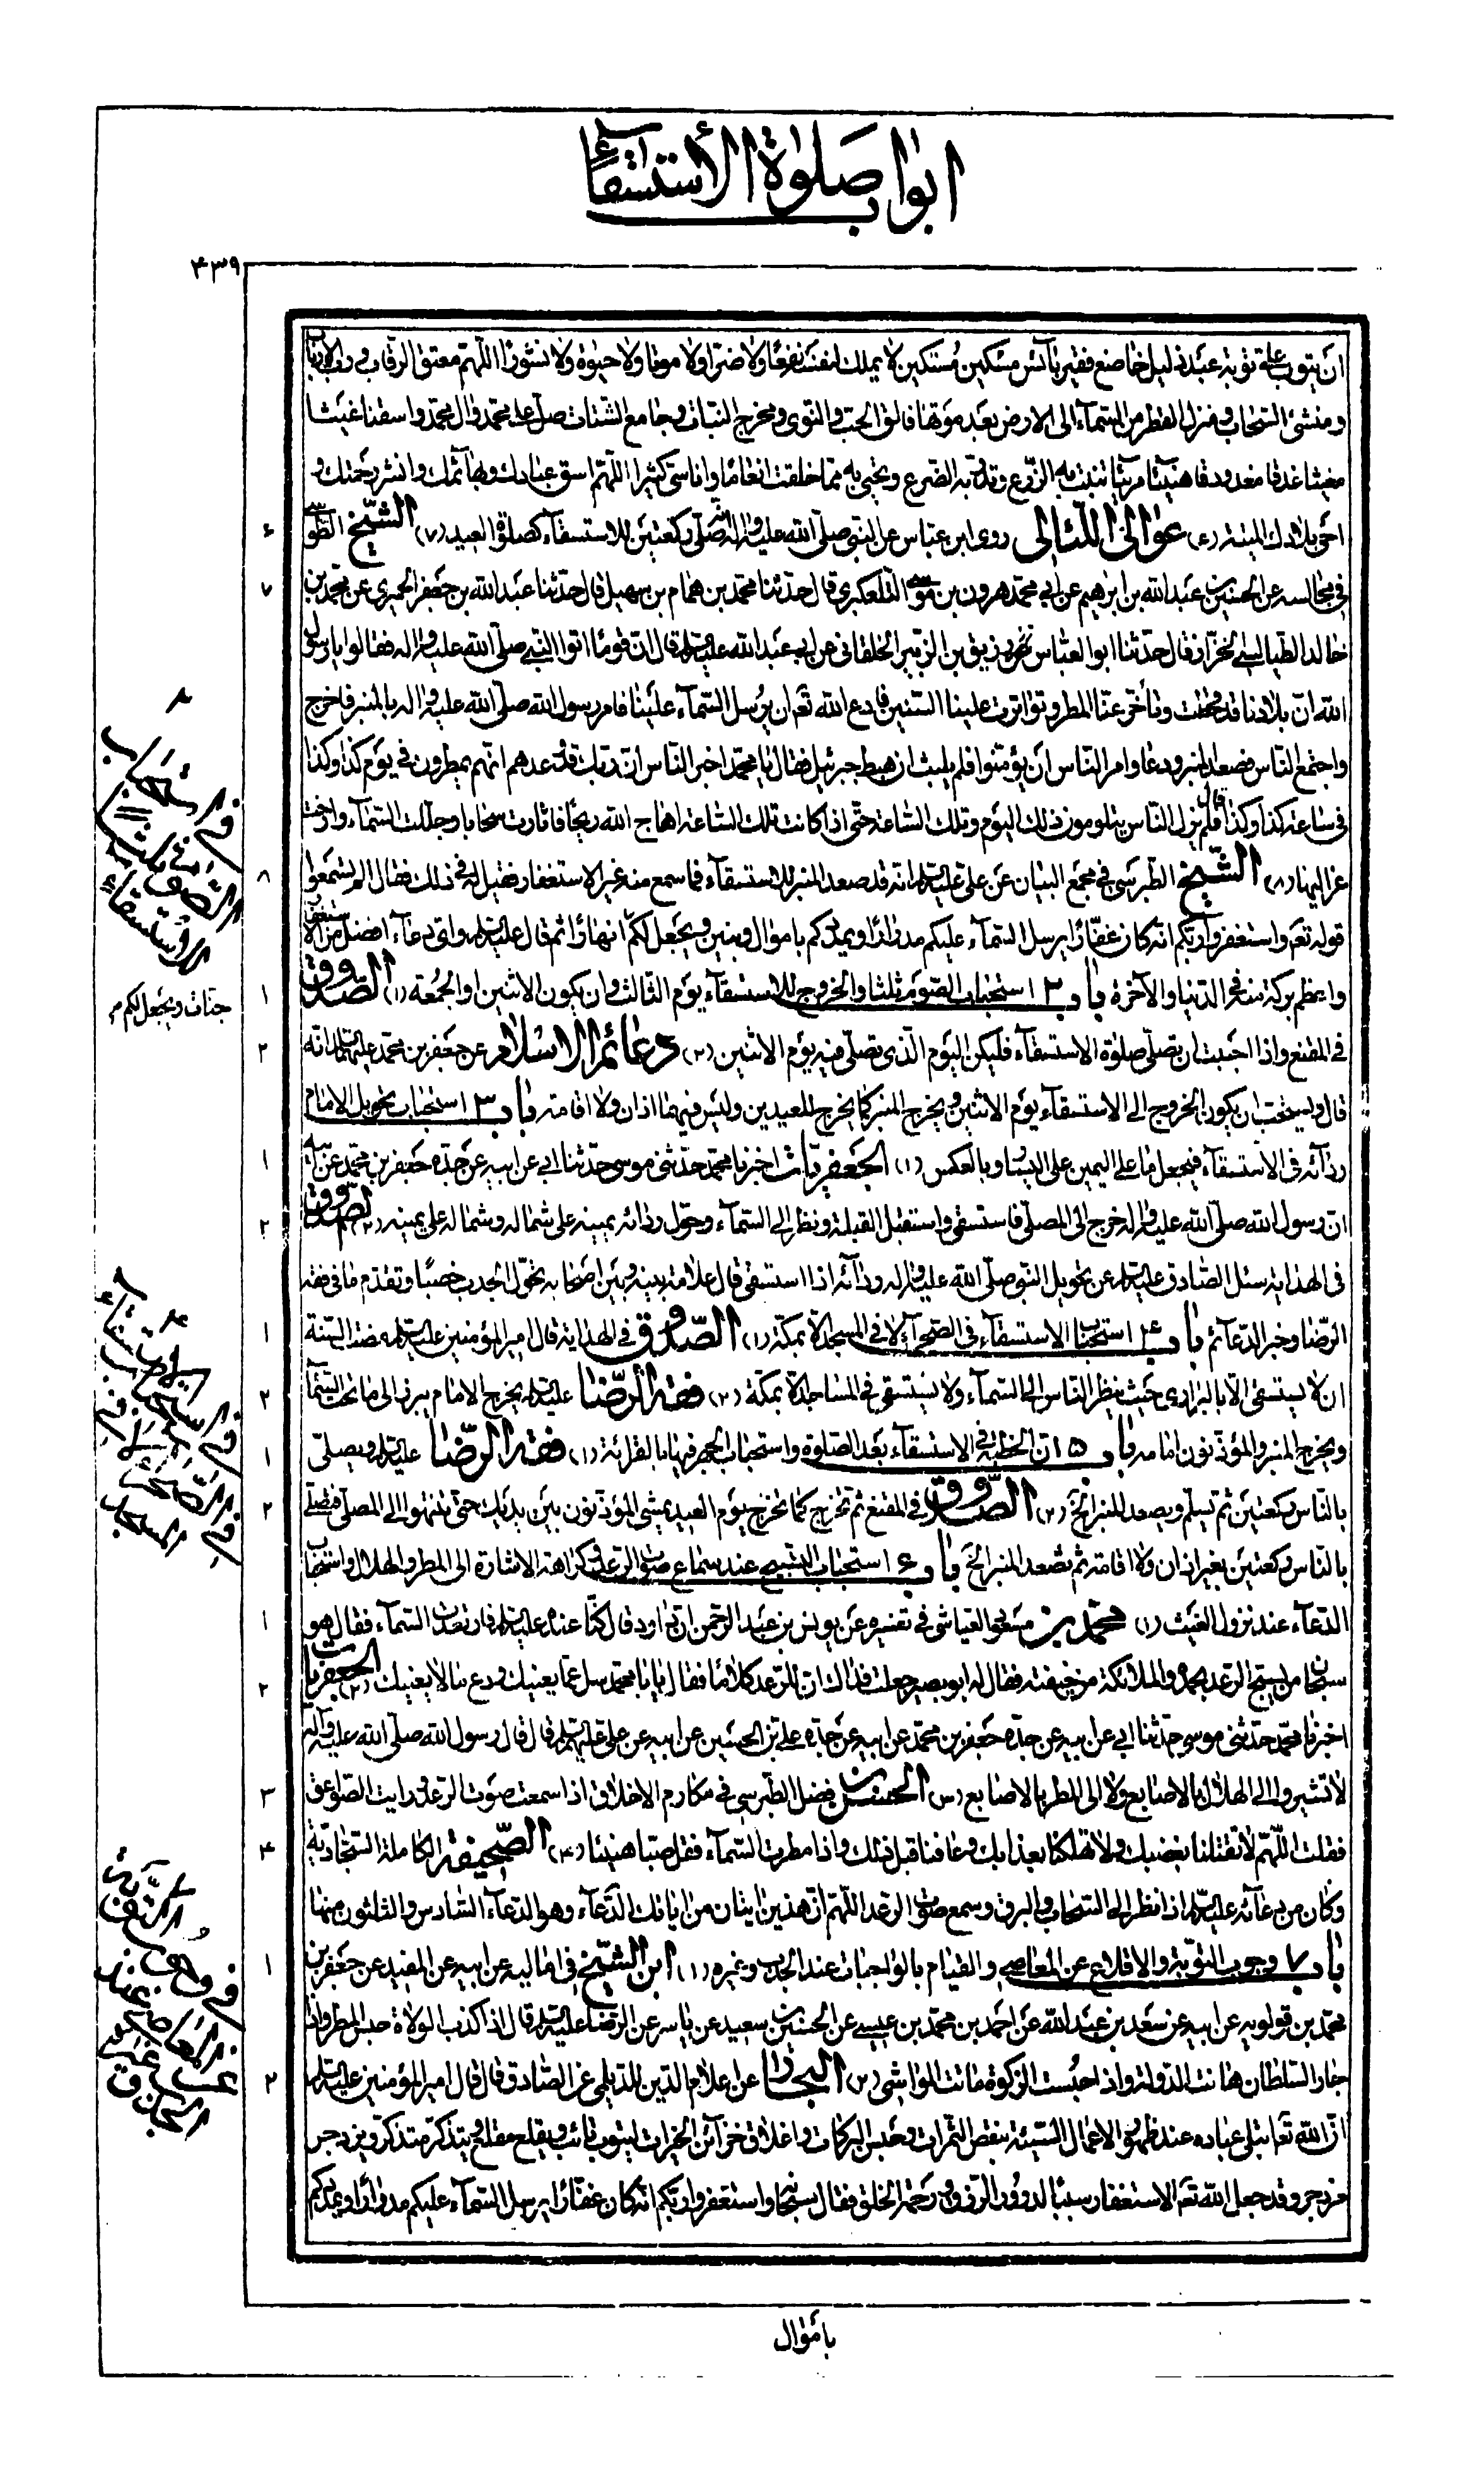 ابواب صلوة الأستسقاء
۴۳۹
ان يتوب علىّ توبة عبد ذليل خاضع فقير بائس مسكين مستكين لا يملك لنفسه نفعا ولا ضرا ولا موتا ولا حيوة ولا نشورا اللهم معتق الرقاب ورب الارباب
ومنشئ السحاب ومنزل القطر من السماء الى الارض بعد موتها فالق الحب والنوى ومخرج النبات وجامع الشتات صل على محمد وال محمد واسقنا غيثا
مغيثا غدقا مغدودقا هنيئا مريئا تنبت به الزرع وتدر به الضرع وتحيى به مما خلقت انعاما واناسى كثيرا اللهم اسق عبادك وبهائمك وانشر رحمتك و
احى بلادك الميتة (۶) عوالى اللئالى روى ابن عباس عن النبى صلى الله عليه واله انه صلى ركعتين للاستسقاء كصلوة العيد (۷) الشيخ الطوسى
فى مجالسه عن الحسين بن عبد الله بن ابرهيم عن ابى محمد هرون بن موسى التلعكبرى قال حدثنا محمد بن همام بن سهيل قال حدثنا عبد الله بن جعفر الحميرى عن محمد بن
خالد الطيالسى الخزاز قال حدثنا ابو العباس رزيق بن الزبير الخلقانى عن ابى عبد الله عليه السلم قال ان قوما اتوا النبى صلى الله عليه واله فقالوا يا رسول
الله ان بلادنا قد قحطت وتأخر عنا المطر وتواترت علينا السنين فادع الله تع ان يرسل السماء علينا فامر رسول الله صلى الله عليه واله بالمنبر فاخرج
واجتمع الناس فصعد المنبر ودعا وامر الناس ان يؤمنوا فلم يلبث ان هبط جبرئيل فقال يا محمد اخبر الناس ان ربك قد وعدهم انهم يمطرون فى يوم كذا وكذا
فى ساعة كذا وكذا قال فلم يزل الناس يتلومون ذلك اليوم وتلك الساعة حتى اذا كانت تلك الساعة اهاج الله ريحا فاثارت سحابا وجللت السماء وارخت
عزاليها (۸) الشيخ الطبرسى فى مجمع البيان عن على عليه السلم انه قد صعد المنبر للاستسقاء فما سمع منه غير الاستغفار فقيل له فى ذلك فقال الم تسمعوا
قوله تع واستغفروا ربكم انه كان غفارا يرسل السماء عليكم مدرارا ويمددكم باموال وبنين ويجعل لكم انهارا ثم قال عليه السلم واى دعاء افضل من الاستغفار
واعظم بركة منه فى الدنيا والآخرة باب ۲ استحباب الصوم ثلثا والخروج للاستسقاء يوم الثالث وان يكون الاثنين او الجمعة (۱) الصدوق
فى المقنع واذا احببت ان تصلى صلوة الاستسقاء فليكن اليوم الذى تصلى فيه يوم الاثنين (۲) دعائم الاسلام عن جعفر بن محمد عليهما السلم انه
قال ويستحب ان يكون الخروج الى الاستسقاء يوم الاثنين ويخرج المنبر كما يخرج للعيدين وليس فيهما اذان ولا اقامة باب ۳ استحباب تحويل الامام
ردآئه فى الاستسقاء فيجعل ما على اليمين على اليسار وبالعكس (۱) الجعفريات اخبرنا محمد حدثنى موسى حدثنا ابى عن ابيه عن جده جعفر بن محمد عن ابيه
ان رسول الله صلى الله عليه واله خرج الى المصلى فاستسقى واستقبل القبلة ونظر الى السماء وحول ردائه يمينه على شماله وشماله على يمينه (۲) الصدوق
فى الهداية سئل الصادق عليه السلم عن تحويل النبى صلى الله عليه واله ردآئه اذا استسقى قال علامة بينه وبين اصحابه تحول الجدب خصبا وتقدم ما فى فقه
الرضا وخبر الدعائم باب ۴ استحباب الاستسقاء فى الصحراء لا فى المسجد الا بمكة (۱) الصدوق فى الهداية قال امير المؤمنين عليه السلم مضت السنة
ان لا يستسقى الا بالبرارى حيث ينظر الناس الى السماء ولا يستسقى فى المساجد الا بمكة (۲) فقه الرضا عليه السلم يخرج الامام يبرز الى ما تحت السماء
ويخرج المنبر والمؤذنون امامه باب ۵ ان الخطبة فى الاستسقاء بعد الصلوة واستحباب الجهر فيها بالقرائة (۱) فقه الرضا عليه السلم ويصلى
بالناس ركعتين ثم تسلم ويصعد المنبر الخ (۲) الصدوق فى المقنع ثم تخرج كما تخرج يوم العيد يمشى المؤذنون بين يديك حتى تنتهوا الى المصلى فتصلى
بالناس ركعتين بغير اذان ولا اقامة ثم تصعد المنبر الخ باب ۶ استحباب التسبيح عند سماع صوت الرعد وكراهة الاشارة الى المطر والهلال واستحباب
الدعاء عند نزول الغيث (۱) محمد بن مسعود العياشى فى تفسيره عن يونس بن عبد الرحمن ان داود قال كنا عنده عليه السلم فارتعدت السماء فقال هو
سبحان من يسبح الرعد بحمده والملائكة من خيفته فقال له ابو بصير جعلت فداك ان للرعد كلاما فقال يا با محمد سل عما يعنيك ودع ما لا يعنيك (۲) الجعفريات
اخبرنا محمد حدثنى موسى حدثنا ابى عن ابيه عن جده جعفر بن محمد عن ابيه عن جده على بن الحسين عن ابيه عن على عليهم السلم قال قال رسول الله صلى الله عليه واله
لا تشيروا الى الهلال بالاصابع ولا الى المطر بالاصابع (۳) الحسن بن فضل الطبرسى فى مكارم الاخلاق اذا سمعت صوت الرعد ورايت الصواعق
فقلت اللهم لا تقتلنا بغضبك ولا تهلكنا بعذابك وعافنا قبل ذلك واذا مطرت السماء فقل صبا هنيئا (۴) الصحيفة الكاملة السجادية
وكان من دعائه عليه السلم اذا نظر الى السحاب والبرق وسمع صوت الرعد اللهم ان هذين ايتان من اياتك الدعاء وهو الدعاء السادس والثلثون منها
باب ۷ وجوب التوبة والاقلاع عن المعاصى والقيام بالواجبات عند الجدب وغيره (۱) ابن الشيخ فى اماليه عن ابيه عن المفيد عن جعفر بن
محمد بن قولويه عن ابيه عن سعد بن عبد الله عن احمد بن محمد بن عيسى عن الحسين بن سعيد عن ياسر عن الرضا عليه السلم قال اذا كذب الولاة حبس المطر واذا
جار السلطان هانت الدولة واذا حبست الزكوة ماتت المواشى (۲) البحار عن اعلام الدين للديلمى عن الصادق قال قال امير المؤمنين عليه السلم
ان الله تع ابتلى عباده عند ظهور الاعمال السيئة بنقص الثمرات وحبس البركات واغلاق خزآئن الخيرات ليتوب تائب ويقلع مقلع ويتذكر متذكر ويزدجر
مزدجر وقد جعل الله تع الاستغفار سببا لدرور الرزق ورحمة الخلق فقال سبحانه واستغفروا ربكم انه كان غفارا يرسل السماء عليكم مدرارا ويمددكم
۶
۷
۸
۱
۲
۱
۲
۱
۲
۱
۲
۱
۲
۳
۴
۱
۲
۲
فى استحباب
الصوم
للاستسقاء
جنات ويجعل لكم م
۴
فى استحباب
الاستسقاء
فى الصحراء لا فى
المسجد
۷
فى وجوب التوبة
عن المعاصى عند
الجدب
باموال